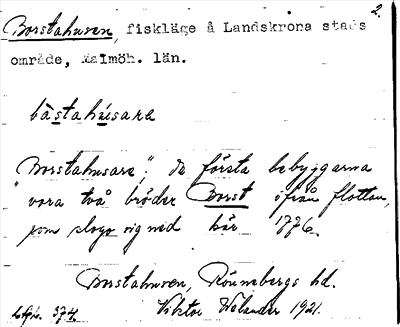 2.
Borstahusen, fiskläge å Landskrona stads
område, Malmöh. län.
bàstahúsara
"Borstahusare"; de första bebyggarna
vora två bröder Borst ifrån flottan,
som slogo sig ned här 1776.
Borstahusen, Rönnebergs hd.
Viktor Welander 1921.